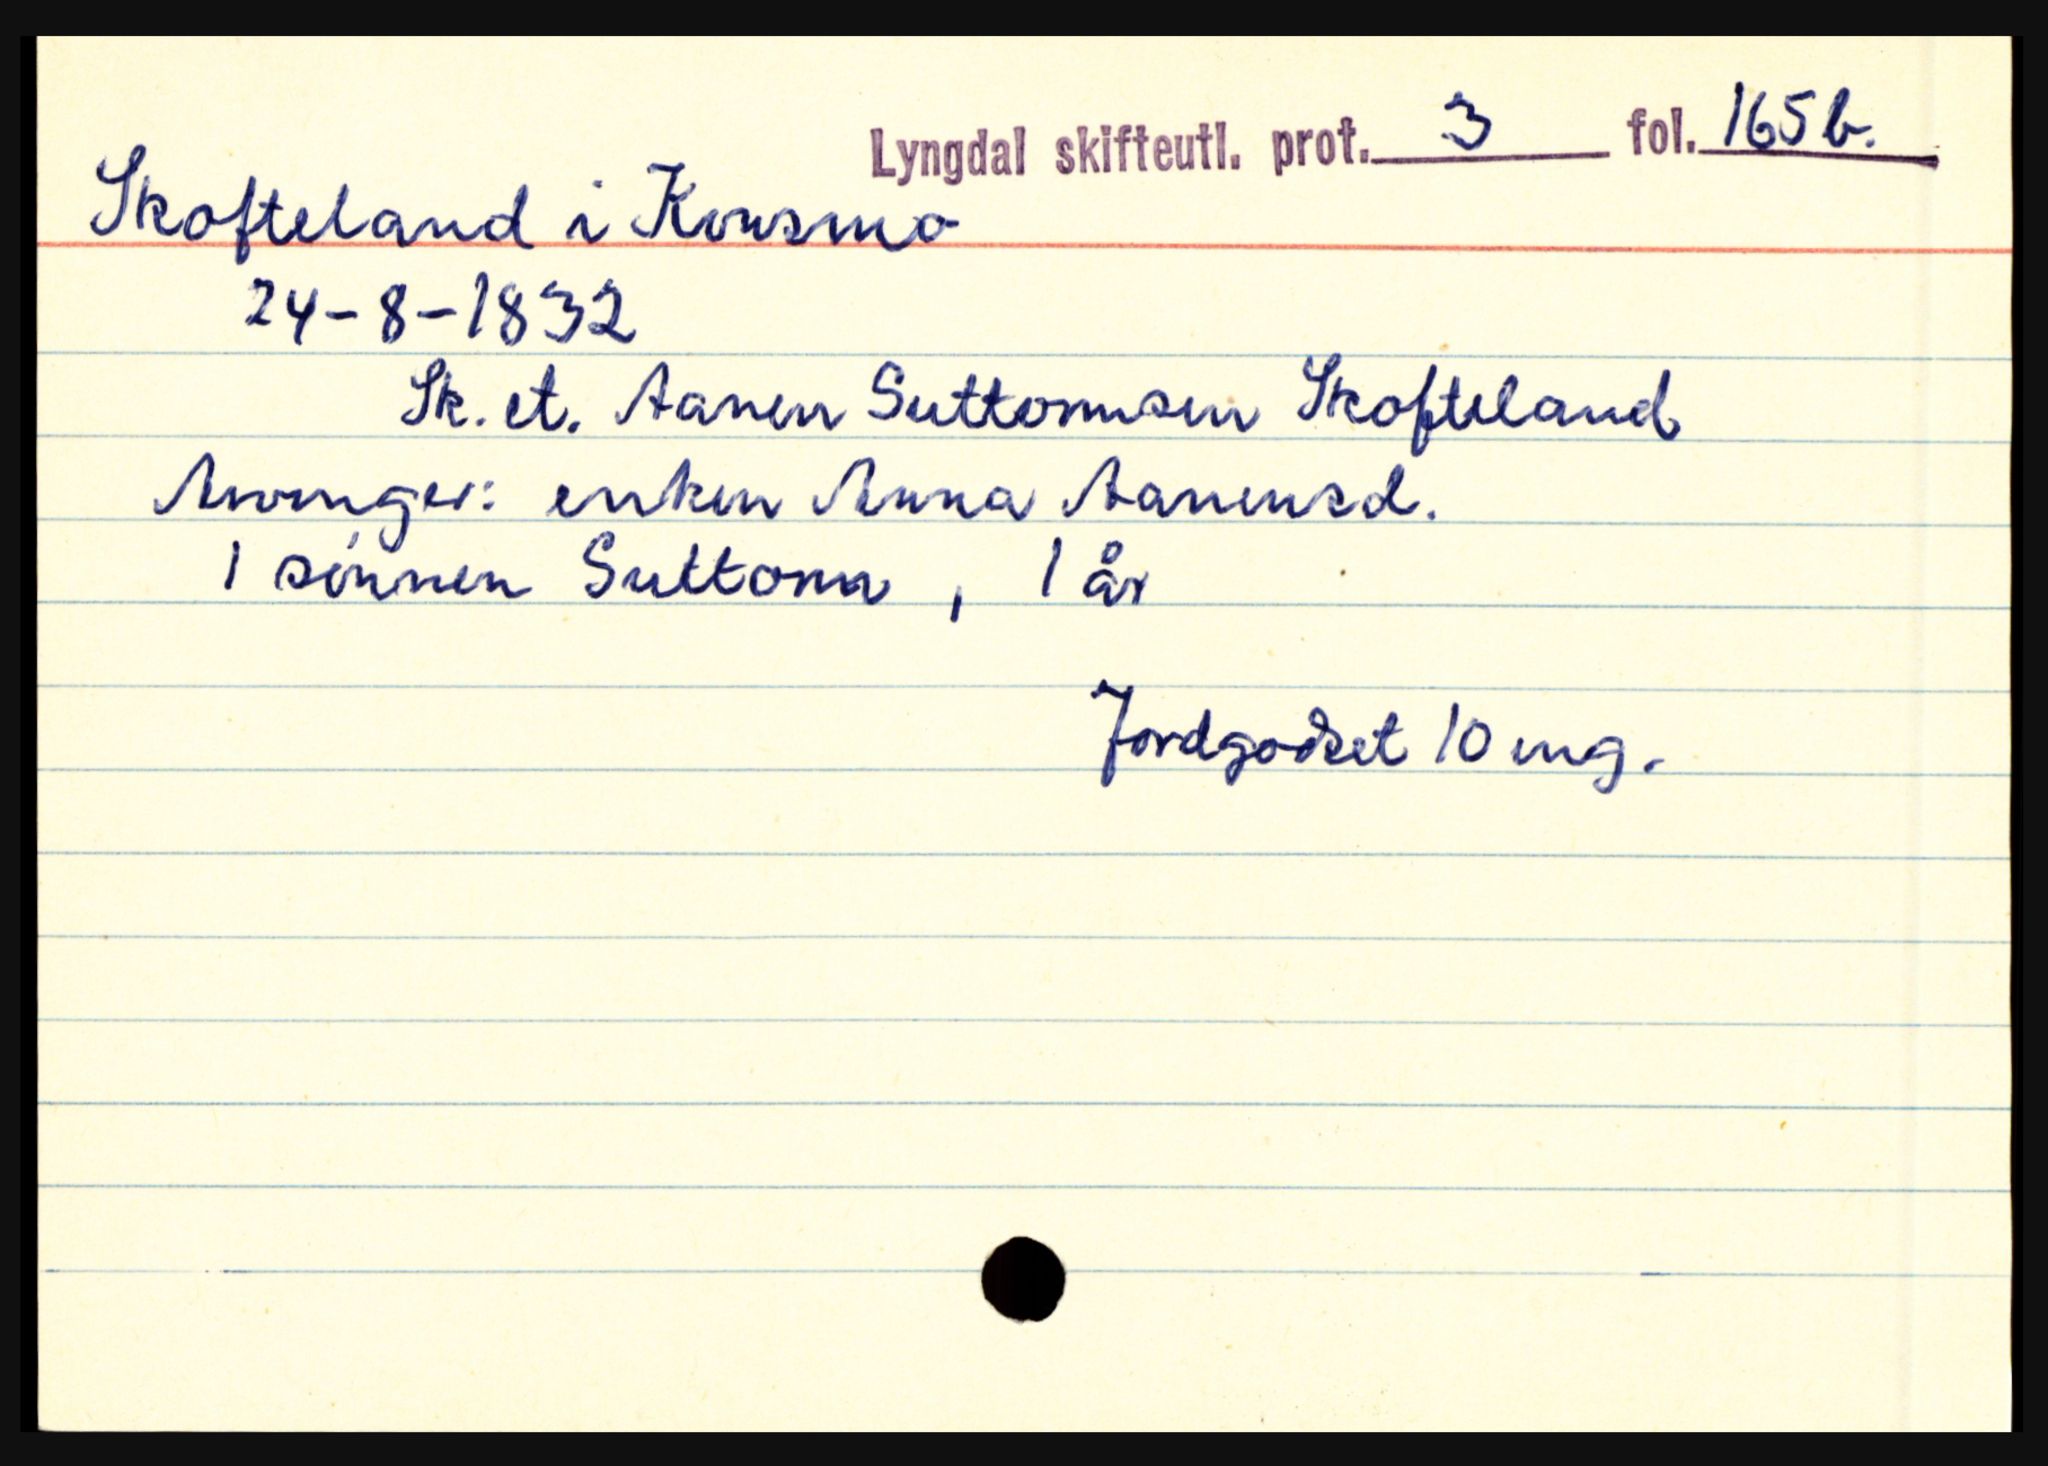 Lyngdal skifteutl. prot. 3 fol. 165b.
Skofteland i Konsmo
24-8-1832
Sk. et. Aanen Suttormsen Skofteland
Arvinger: enken Anna Aanensd.
1 sønnen Suttorm, 1 år
Jordgodset 10 mg.